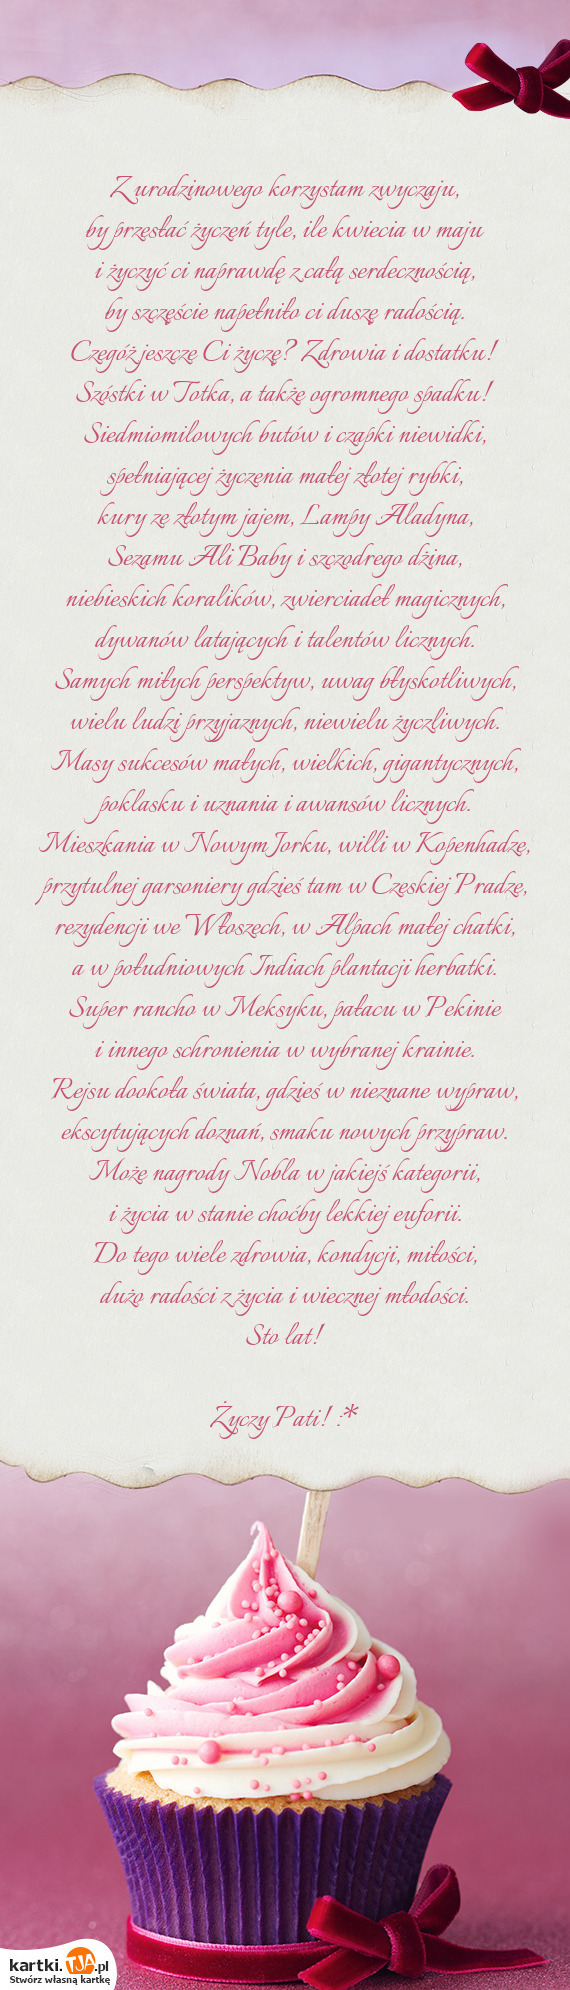 Z urodzinowego korzystam zwyczaju,
by przesłać życzeń tyle, ile kwiecia w maju
i życzyć ci naprawdę z całą serdecznością,
by szczęście napełniło ci duszę radością.
Czegóż jeszcze Ci życzę? Zdrowia i dostatku!
Szóstki w Totka, a także ogromnego spadku!
Siedmiomilowych butów i czapki niewidki,
spełniającej życzenia małej złotej rybki,
kury ze złotym jajem, Lampy Aladyna,
Sezamu Ali Baby i szczodrego dżina,
niebieskich koralików, zwierciadeł magicznych,
dywanów latających i talentów licznych.
Samych miłych perspektyw, uwag błyskotliwych,
wielu ludzi przyjaznych, niewielu życzliwych.
Masy sukcesów małych, wielkich, gigantycznych,
poklasku i uznania i awansów licznych.
Mieszkania w Nowym Jorku, willi w Kopenhadze,
przytulnej garsoniery gdzieś tam w Czeskiej Pradze,
rezydencji we Włoszech, w Alpach małej chatki,
a w południowych Indiach plantacji herbatki.
Super rancho w Meksyku, pałacu w Pekinie
i innego schronienia w wybranej krainie.
Rejsu dookoła świata, gdzieś w nieznane wypraw,
ekscytujących doznań, smaku nowych przypraw.
Może nagrody Nobla w jakiejś kategorii,
i życia w stanie choćby lekkiej euforii.
Do tego wiele zdrowia, kondycji, miłości,
dużo radości z życia i wiecznej młodości.
Sto lat!
Życzy Pati! :*
kartki.TJA.pl
Stwórz własną kartkę